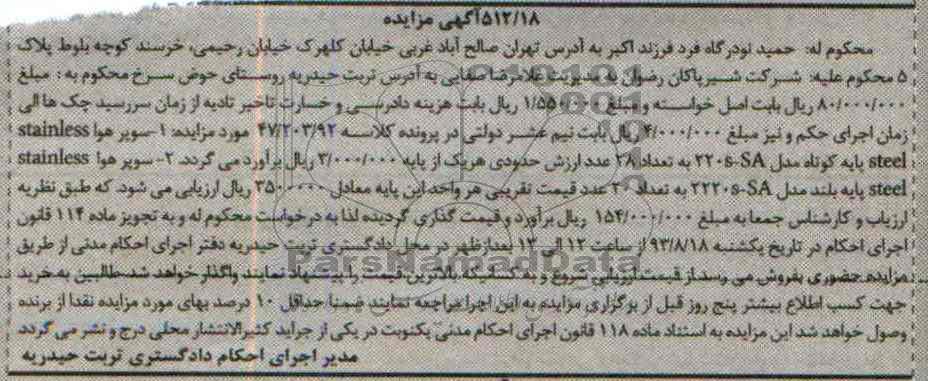 ۵۱۲/۱۸آگهی مزایده
محکوم له: حمید نودرگاه فرد فرزند اکبر به آدرس تهران صالح آباد غربی خیابان کلهرک خیابان رحیمی، خرسند کوچه بلوط پلاک
۵ محکوم علیه: شرکت شیرپاکان رضوان به مدیریت غلامرضا صفایی به آدرس تربت حیدریه روستای حوض سرخ محکوم به: مبلغ
۸۰/۰۰۰/۰۰۰ ریال بابت اصل خواسته و مبلغ ریال بابت هزینه دادرسی و خسارت تاخیر تادیه از زمان سررسید چک ها الی
زمان اجرای حکم و نیز مبلغ ۴/۰۰۰/۰۰۰ ریال بابت نیم عشر دولتی در پرونده کلاسه ۴۷/۲۰۳/۹۲ مورد مزایده: ۱-سوپر هوا stainless
steel پایه کوتاه مدل ۲۲۰s-SA به تعداد ۲۸ عدد ارزش حدودی هریک از پایه ۳/۰۰۰/۰۰۰ ریال برآورد می گردد. ۲- سوپر هوا stainless
steel پایه بلند مدل ۲۲۲۰s-SA به تعداد ۲۰ عدد قیمت تقریبی هر واحد این پایه معادل ریال ارزیابی می شود. که طبق نظریه
ارزیاب و کارشناس جمعا به مبلغ ۱۵۴/۰۰۰/۰۰۰ ریال برآورد و قیمت گذاری گردیده لذا به درخواست محکوم له و به تجویز ماده ۱۱۴ قانون
اجرای احکام در تاریخ یکشنبه ۹۳/۸/۱۸ از ساعت ۱۲ الی ۱۳ بعدازظهر در محل دادگستری تربت حیدریه دفتر اجرای احکام مدنی از طریق
مزایده حضوری بفروش می رسد از قیمت ارزیابی شروع و به کسانیکه بالاترین قیمت را پیشنهاد نمایند واگذار خواهد شد طالبین به خرید
جهت کسب اطلاع بیشتر پنج روز قبل از برگزاری مزایده به این اجرا مراجعه نمایند ضمنا حداقل ۱۰ درصد بهای مورد مزایده نقدا از برنده
وصول خواهد شد این مزایده به استناد ماده ۱۱۸ قانون اجرای احکام مدنی یکنوبت در یکی از جراید کثیرالانتشار محلی درج و نشر می گردد
مدیر اجرای احکام دادگستری تربت حیدریه
ParsNamadData